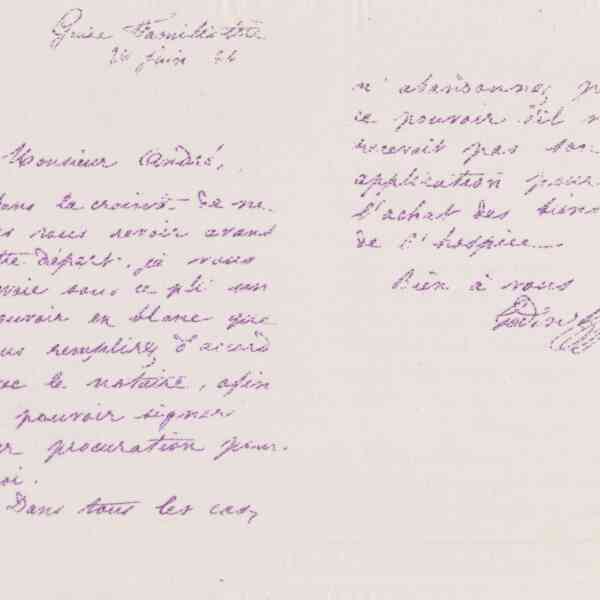 Guise Familistère
24 juin
Monsieur André,
Dans la crainte de ne
vous revoir avant
départ, je vous
sous ce pli un
pouvoir en blanc que
remplirez d'accord
le notaire, afin
pouvoir signer
procuration pour
Dans tous les cas,
n'abandonnez
ce pouvoir s'il
recevait pas son
application pour
l'achat des biens
de l'hospice.
Bien à vous
Godin